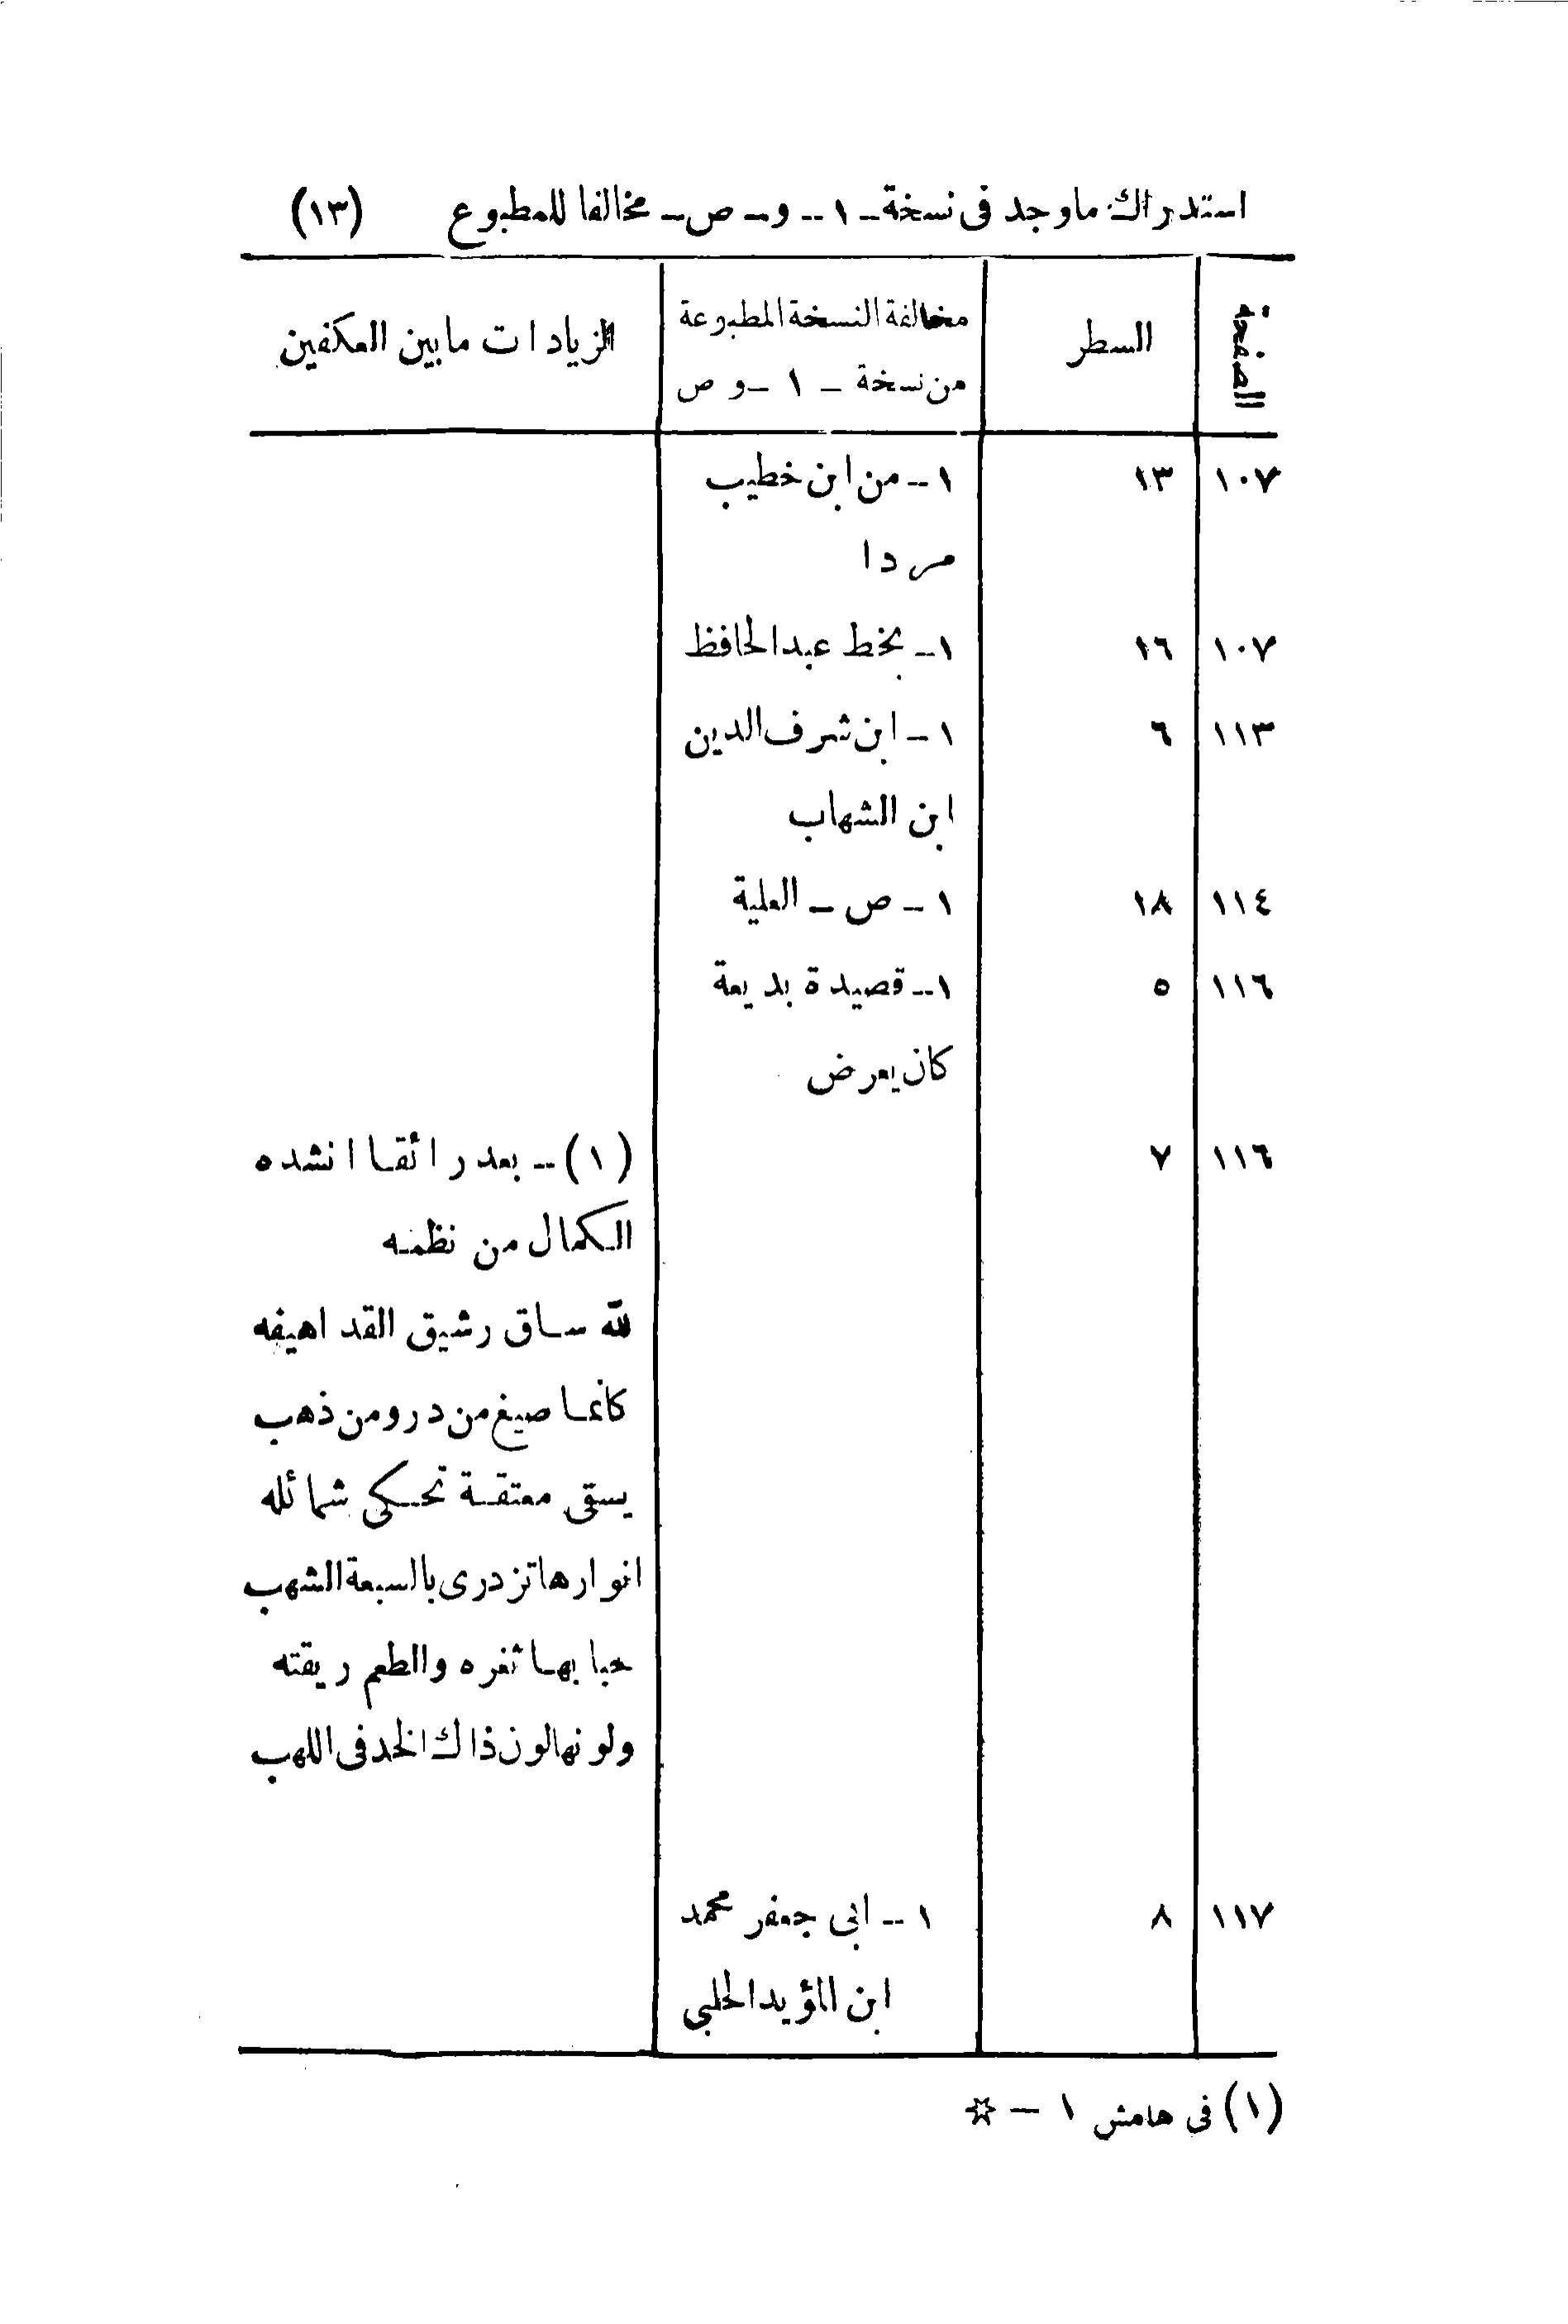 استدراك ماوجد فى نسخة - ١ - و - ص - مخالفا للمطبوع (١٣)
الصفحة السطر مخالفة النسخة المطبوعة من نسخة - ١ - و ص الزيادات مابين العكفين
١٠٧ ١٣ ١ - من ابن خطيب
مردا
١٠٧ ١٦ ١ - بخط عبدالحافظ
١١٣ ٦ ١ - ابن شرف الدين
ابن الشهاب
١١٤ ١٨ ١ - ص - العلية
١١٦ ٥ ١ - قصيدة بديعة
كان يعرض
١١٦ ٧ (١) - بعد رائقا انشده
الكمال من نظمه
لله ساق رشيق القد اهيفه
كانما صيغ من در ومن ذهب
يسقى معتقة تحكى شمائله
انوارها تزدرى بالسبعة الشهب
حبابها ثغره والطعم ريقته
ولونها لون ذاك الخد فى اللهب
١١٧ ٨ ١ - ابى جعفر محمد
ابن المؤيد الحلبي
(١) فى هامش ١ - ☆